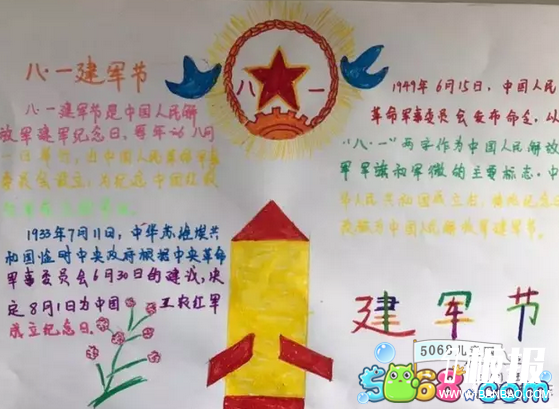 八·一建军节
八·一建军节是中国人民解
放军建军纪念日，每年的八月
一日举行，由中国人民革命军事
委员会设立，为纪念中国工农红军
1933年7月11日，中华苏维埃共
和国临时中央政府根据中央革命
军事委员会6月30日的建议，决
定8月1日为中国工农红军
成立纪念日。
八一
1949年6月15日，中国人民
革命军事委员会发布命令，以
"八·一"两字作为中国人民解放
军军旗和军徽的主要标志。中
华人民共和国成立后，将此纪念日
改称为中国人民解放军建军节。
建军节
5068儿
5068.com
WWW.BANBAO.COM